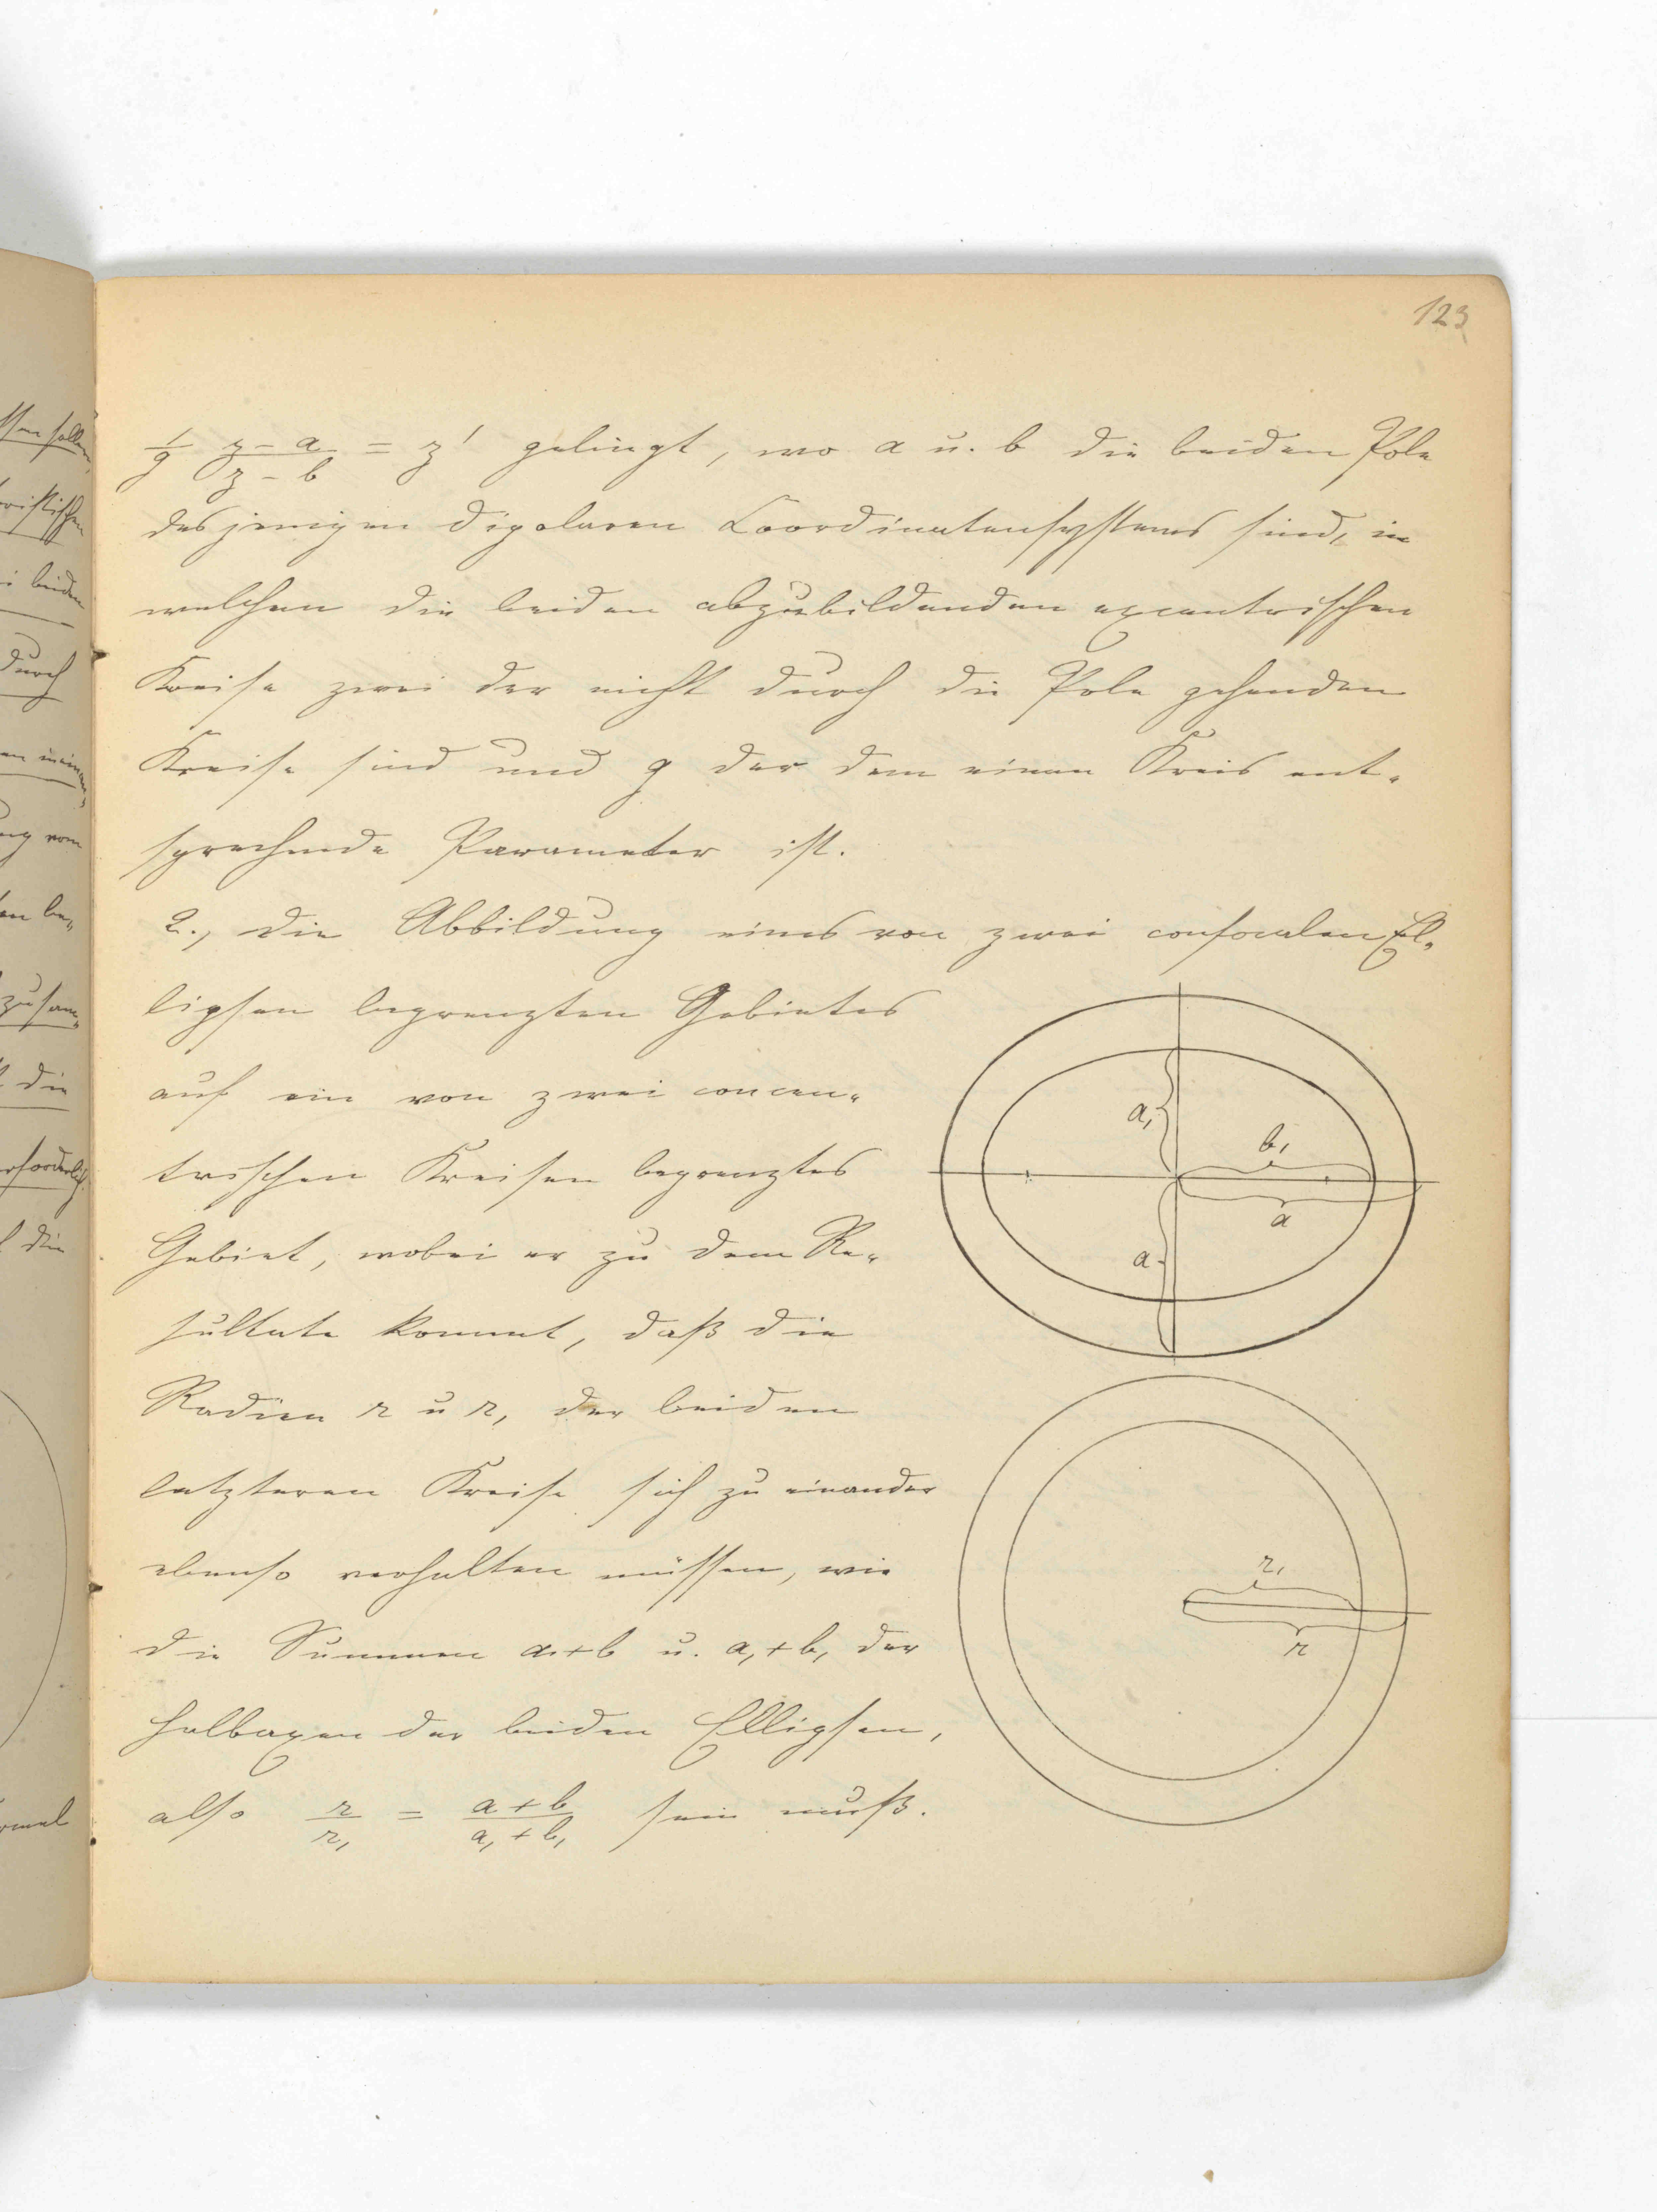 123
1/g (z-a)/(z-b) = z' gelingt, wo a u. b die beiden Pole
desjenigen dipolaren Coordinatensystems sind, in
welchem die beiden abzubildenden excentrischen
Kreise zwei der nicht durch die Pole gehenden
Kreise sind und g der dem einen Kreis ent-
sprechende Parameter ist.
2., die Abbildung eines von zwei confocalen El-
lipsen begrenzten Gebietes
auf ein von zwei concen-
trischen Kreisen begrenztes
Gebiet, wobei er zu dem Re-
sultate kommt, daß die
Radien r u r₁ der beiden
letzteren Kreise sich zu einander
ebenso verhalten müssen, wie
die Summen a+b u. a₁+b₁ der
Halbaxen der beiden Ellipsen,
also r/r₁ = (a+b)/(a₁+b₁) sein muß.
a₁
b₁
a
a
r₁
r
die
beiden
durch
vom
die
die